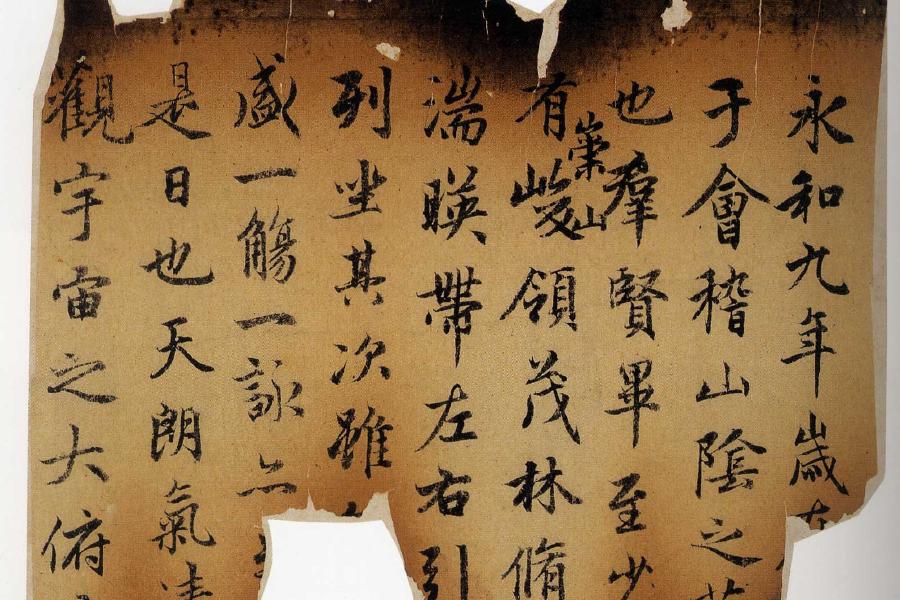 永和九年歲在
于會稽山陰之
也羣賢畢至少
有崇山峻領茂林脩
湍暎帶左右引
列坐其次雖
盛一觴一詠亦
是日也天朗氣清
觀宇宙之大俯